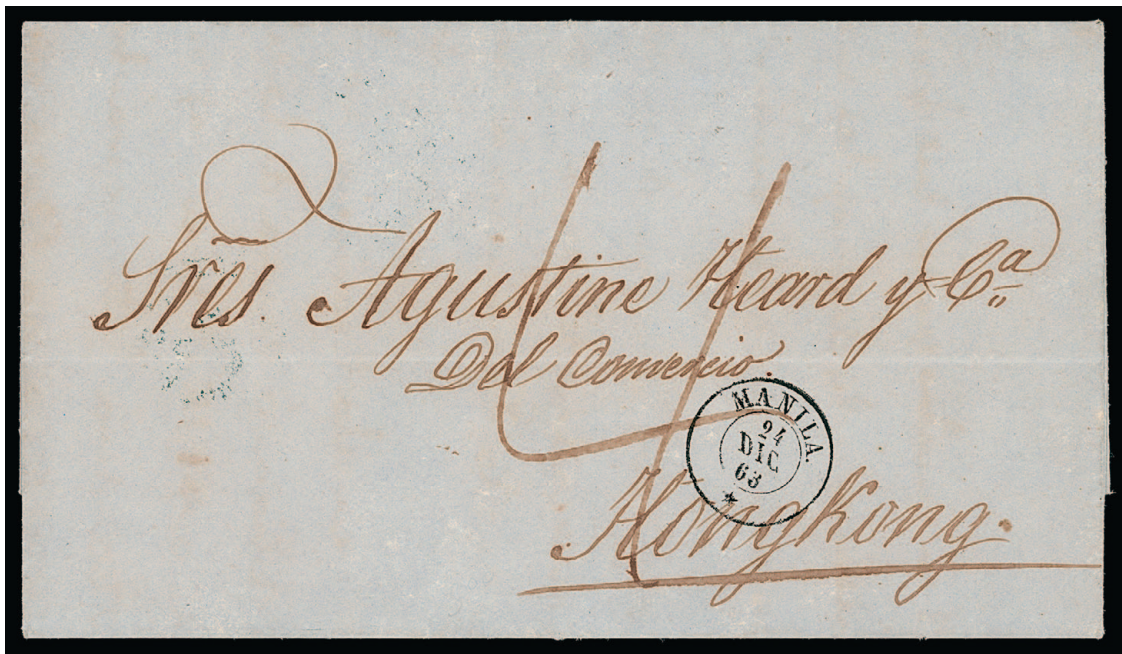 Sres. Agustine Heard y Ca
Del Comercio
4
MANILA.
24
DIC
63
Hong Kong.